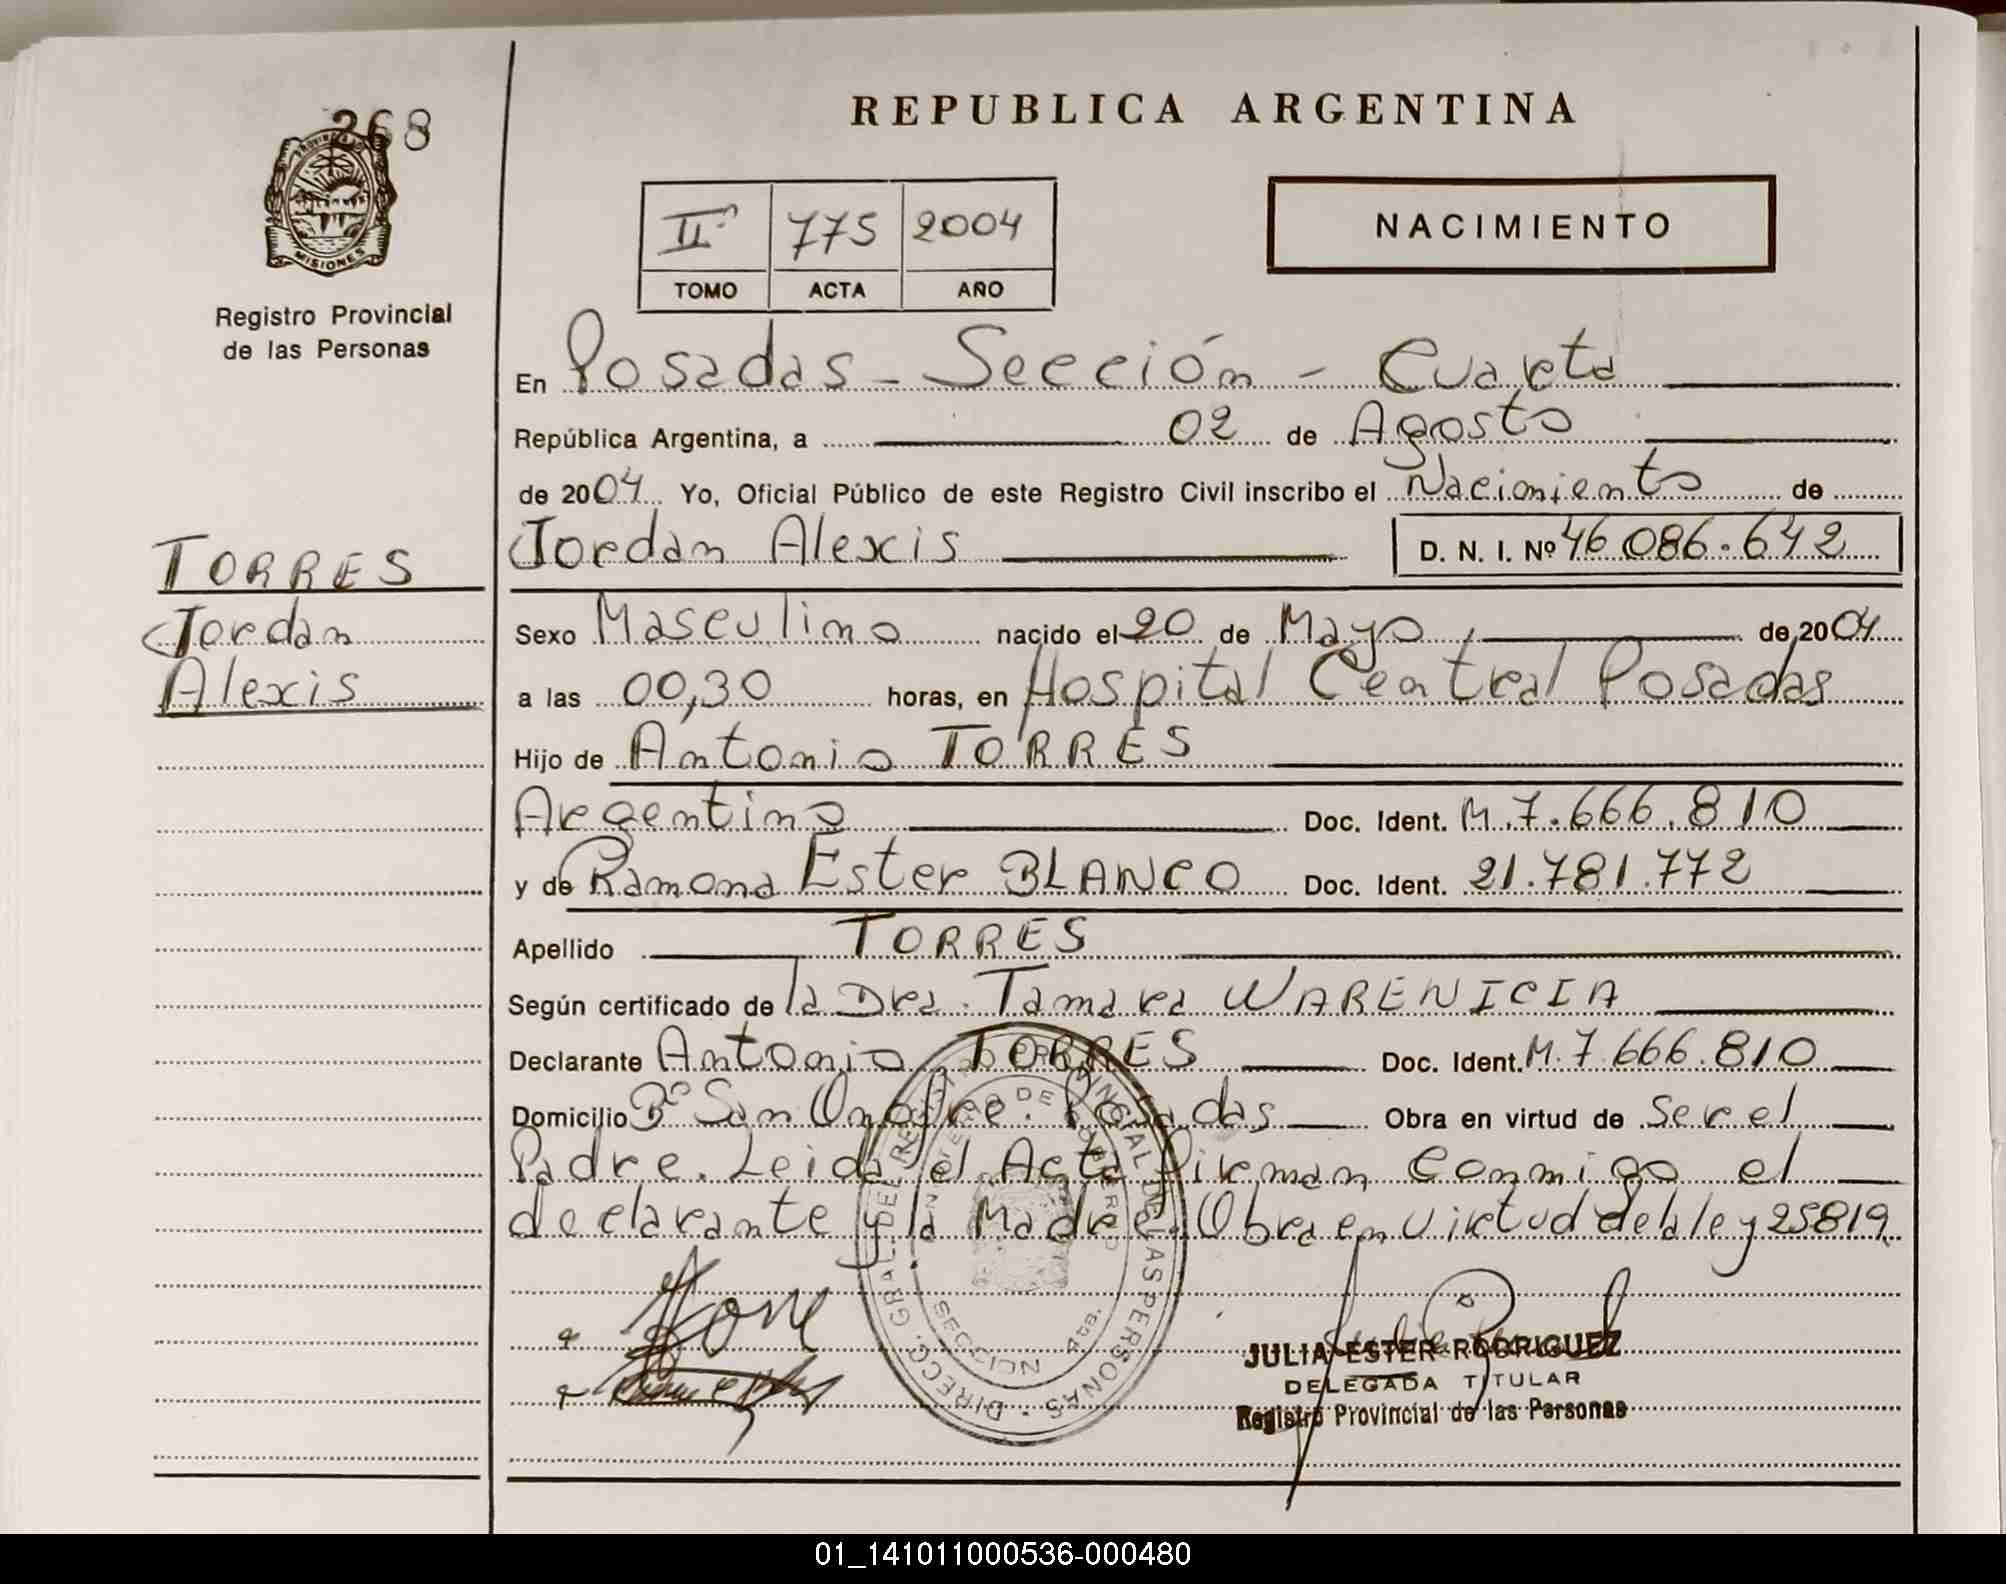 REPUBLICA ARGENTINA
268
MISIONES
Registro Provincial
de las Personas
IIº 775 2004
TOMO ACTA AÑO
NACIMIENTO
En Posadas - Sección - Cuarta
República Argentina, a 02 de Agosto
de 2004 Yo, Oficial Público de este Registro Civil inscribo el Nacimiento de
Jordan Alexis D. N. I. Nº 46 086.642
TORRES
Jordan
Alexis
Sexo Masculino nacido el 20 de Mayo, de 2004
a las 00,30 horas, en Hospital Central Posadas
Hijo de Antonio TORRES
Argentino Doc. Ident. M.7.666.810
y de Ramona Ester BLANCO Doc. Ident. 21.781.772
Apellido TORRES
Según certificado de la Dra. Tamara WARENICIA
Declarante Antonio TORRES Doc. Ident. M.7.666.810
Domicilio Bº San Onofre. Posadas Obra en virtud de ser el
Padre. Leida el Acta firman conmigo el
declarante y la Madre. Obra en virtud de la ley 25819.
DIRECC. GRAL. DEL REGISTRO PROVINCIAL DE LAS PERSONAS
MINISTERIO DE GOBIERNO
SECCION 4ta.
JULIA ESTER RODRIGUEZ
DELEGADA TITULAR
Registro Provincial de las Personas
01_141011000536-000480